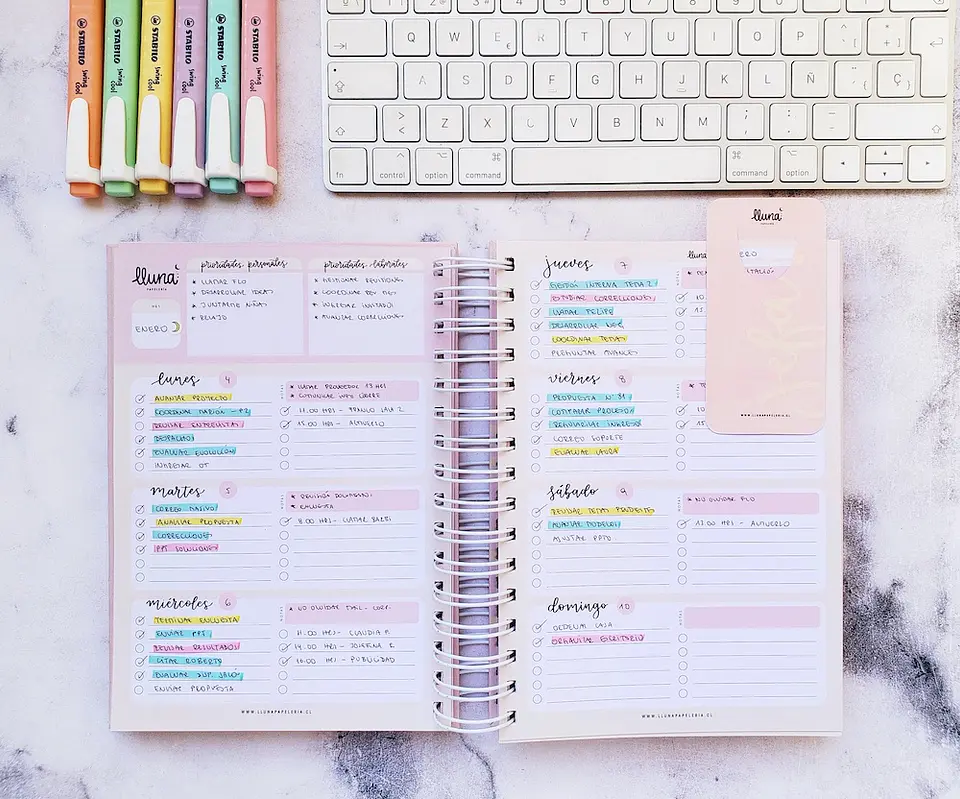 STABILO swing cool
STABILO swing cool
STABILO swing cool
STABILO swing cool
STABILO swing cool
STABILO swing cool
Q W E € R T Y U I O P
A S D F G H J K L Ñ Ç
> < Z X C V B N M ; , : . _ -
fn control option command command option
lluna
PAPELERIA
MES
ENERO
prioridades personales
LLAMAR FLO
DESARROLLAR IDEAS
JUNTARME NIÑAS
RELAJO
prioridades laborales
GESTIONAR REVISIONES
INGRESAR INVITADOS
AVANZAR CORRECCIONES
lunes 4
AVANZAR PROYECTO
COORDINAR
REVISAR ENTREVISTAS
DESPACHOS
EVALUAR EVOLUCIÓN
INGRESAR OT
LLAMAR PROVEEDOR 13 HRS
COMUNICAR
11:00 HRS -
15:00 HRS - ALMUERZO
martes 5
CORREO MASIVO
ANALIZAR PROPUESTA
CORRECCIONES
PPT SOLUCIONES
REVISIÓN
ENCUESTA
18:00 HRS - LLAMAR BARBI
miércoles 6
TERMINAR ENCUESTA
ENVIAR PPT
REVISAR RESULTADOS
CITAR ROBERTO
EVALUAR SUP.
ENVIAR PROPUESTA
NO OLVIDAR
11:00 HRS - CLAUDIA P.
14:00 HRS - JOSEFINA E.
16:00 HRS - PUBLICIDAD
WWW.LLUNAPAPELERIA.CL
jueves 7
GESTIÓN INTERNA TEMA 2
ESTUDIAR CORRECCIONES
LLAMAR FELIPE
DESARROLLAR
COORDINAR TEMAS
PREGUNTAR AVANCES
viernes 8
PROPUESTA N° 31
COTIZAR PROCESO
REGULARIZAR INGRESOS
CORREO SOPORTE
EVALUAR LAURA
sábado 9
REVISAR TEMAS PENDIENTES
AVANZAR MODELOS
AJUSTAR PPTO
NOTAS
NO OLVIDAR FLO
13:00 HRS - ALMUERZO
domingo 10
ORDENAR CASA
ORGANIZAR ESCRITORIO
NOTAS
WWW.LLUNAPAPELERIA.CL
lluna
PAPELERIA
ERO
WWW.LLUNAPAPELERIA.CL